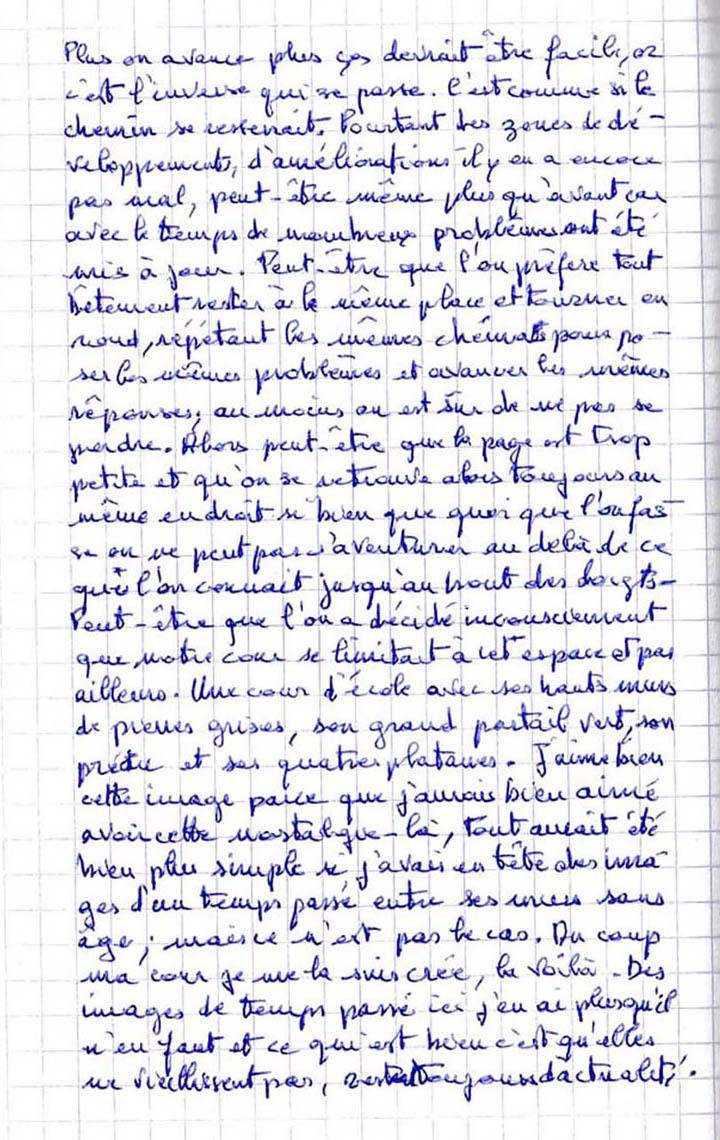 Plus on avance plus ça devrait être facile, or
c'est l'inverse qui se passe. C'est comme si le
chemin se resserrait. Pourtant des zones de dé-
veloppements, d'améliorations il y en a encore
pas mal, peut-être même plus qu'avant car
avec le temps de nombreux problèmes ont été
mis à jour. Peut-être que l'on préfère tout
bêtement rester à la même place et tourner en
rond, répétant les mêmes schémas pour po-
ser les mêmes problèmes et avancer les mêmes
réponses; au moins on est sûr de ne pas se
perdre. Alors peut-être que la page est trop
petite et qu'on se retrouve alors toujours au
même endroit si bien que quoi que l'on fas-
se on ne peut pas s'aventurer au delà de ce
que l'on connait jusqu'au bout des doigts-
Peut-être que l'on a décidé inconsciemment
que notre cour se limitait à cet espace et pas
ailleurs. Une cour d'école avec ses hauts murs
de pierres grises, son grand portail vert, son
préau et ses quatres platanes. J'aime bien
cette image parce que j'aurais bien aimé
avoir cette nostalgie-là, tout aurait été
bien plus simple si j'avais en tête des ima-
ges d'un temps passé entre ses murs sans
âge; mais ce n'est pas le cas. Du coup
ma cour je me la suis créé, la voilà. Des
images de temps passé ici j'en ai plus qu'il
n'en faut et ce qui est bien c'est qu'elles
ne vieillissent pas, toujours d'actualité.